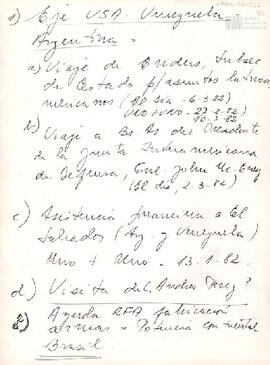 1) Eje USA. Venezuela
Argentina =
a) Viaje de Enders, Subsec
de Estado p/asuntos latinoa
mericanos (El Día - 6-3-82)
UNO + UNO - 27-2-82
10-3-82
b) Viaje a Bs As del Presidente
de la Junta Interamericana
de Defensa, Gral. John Mc. Enery
(El día, 2-3-82)
c) Asistencia financiera a El
Salvador (Arg. y Venezuela)
Uno + Uno - 13-1-82.
d) Visita de
2) Ayuda RFA fabricación
armas = Potencia continental
Brasil